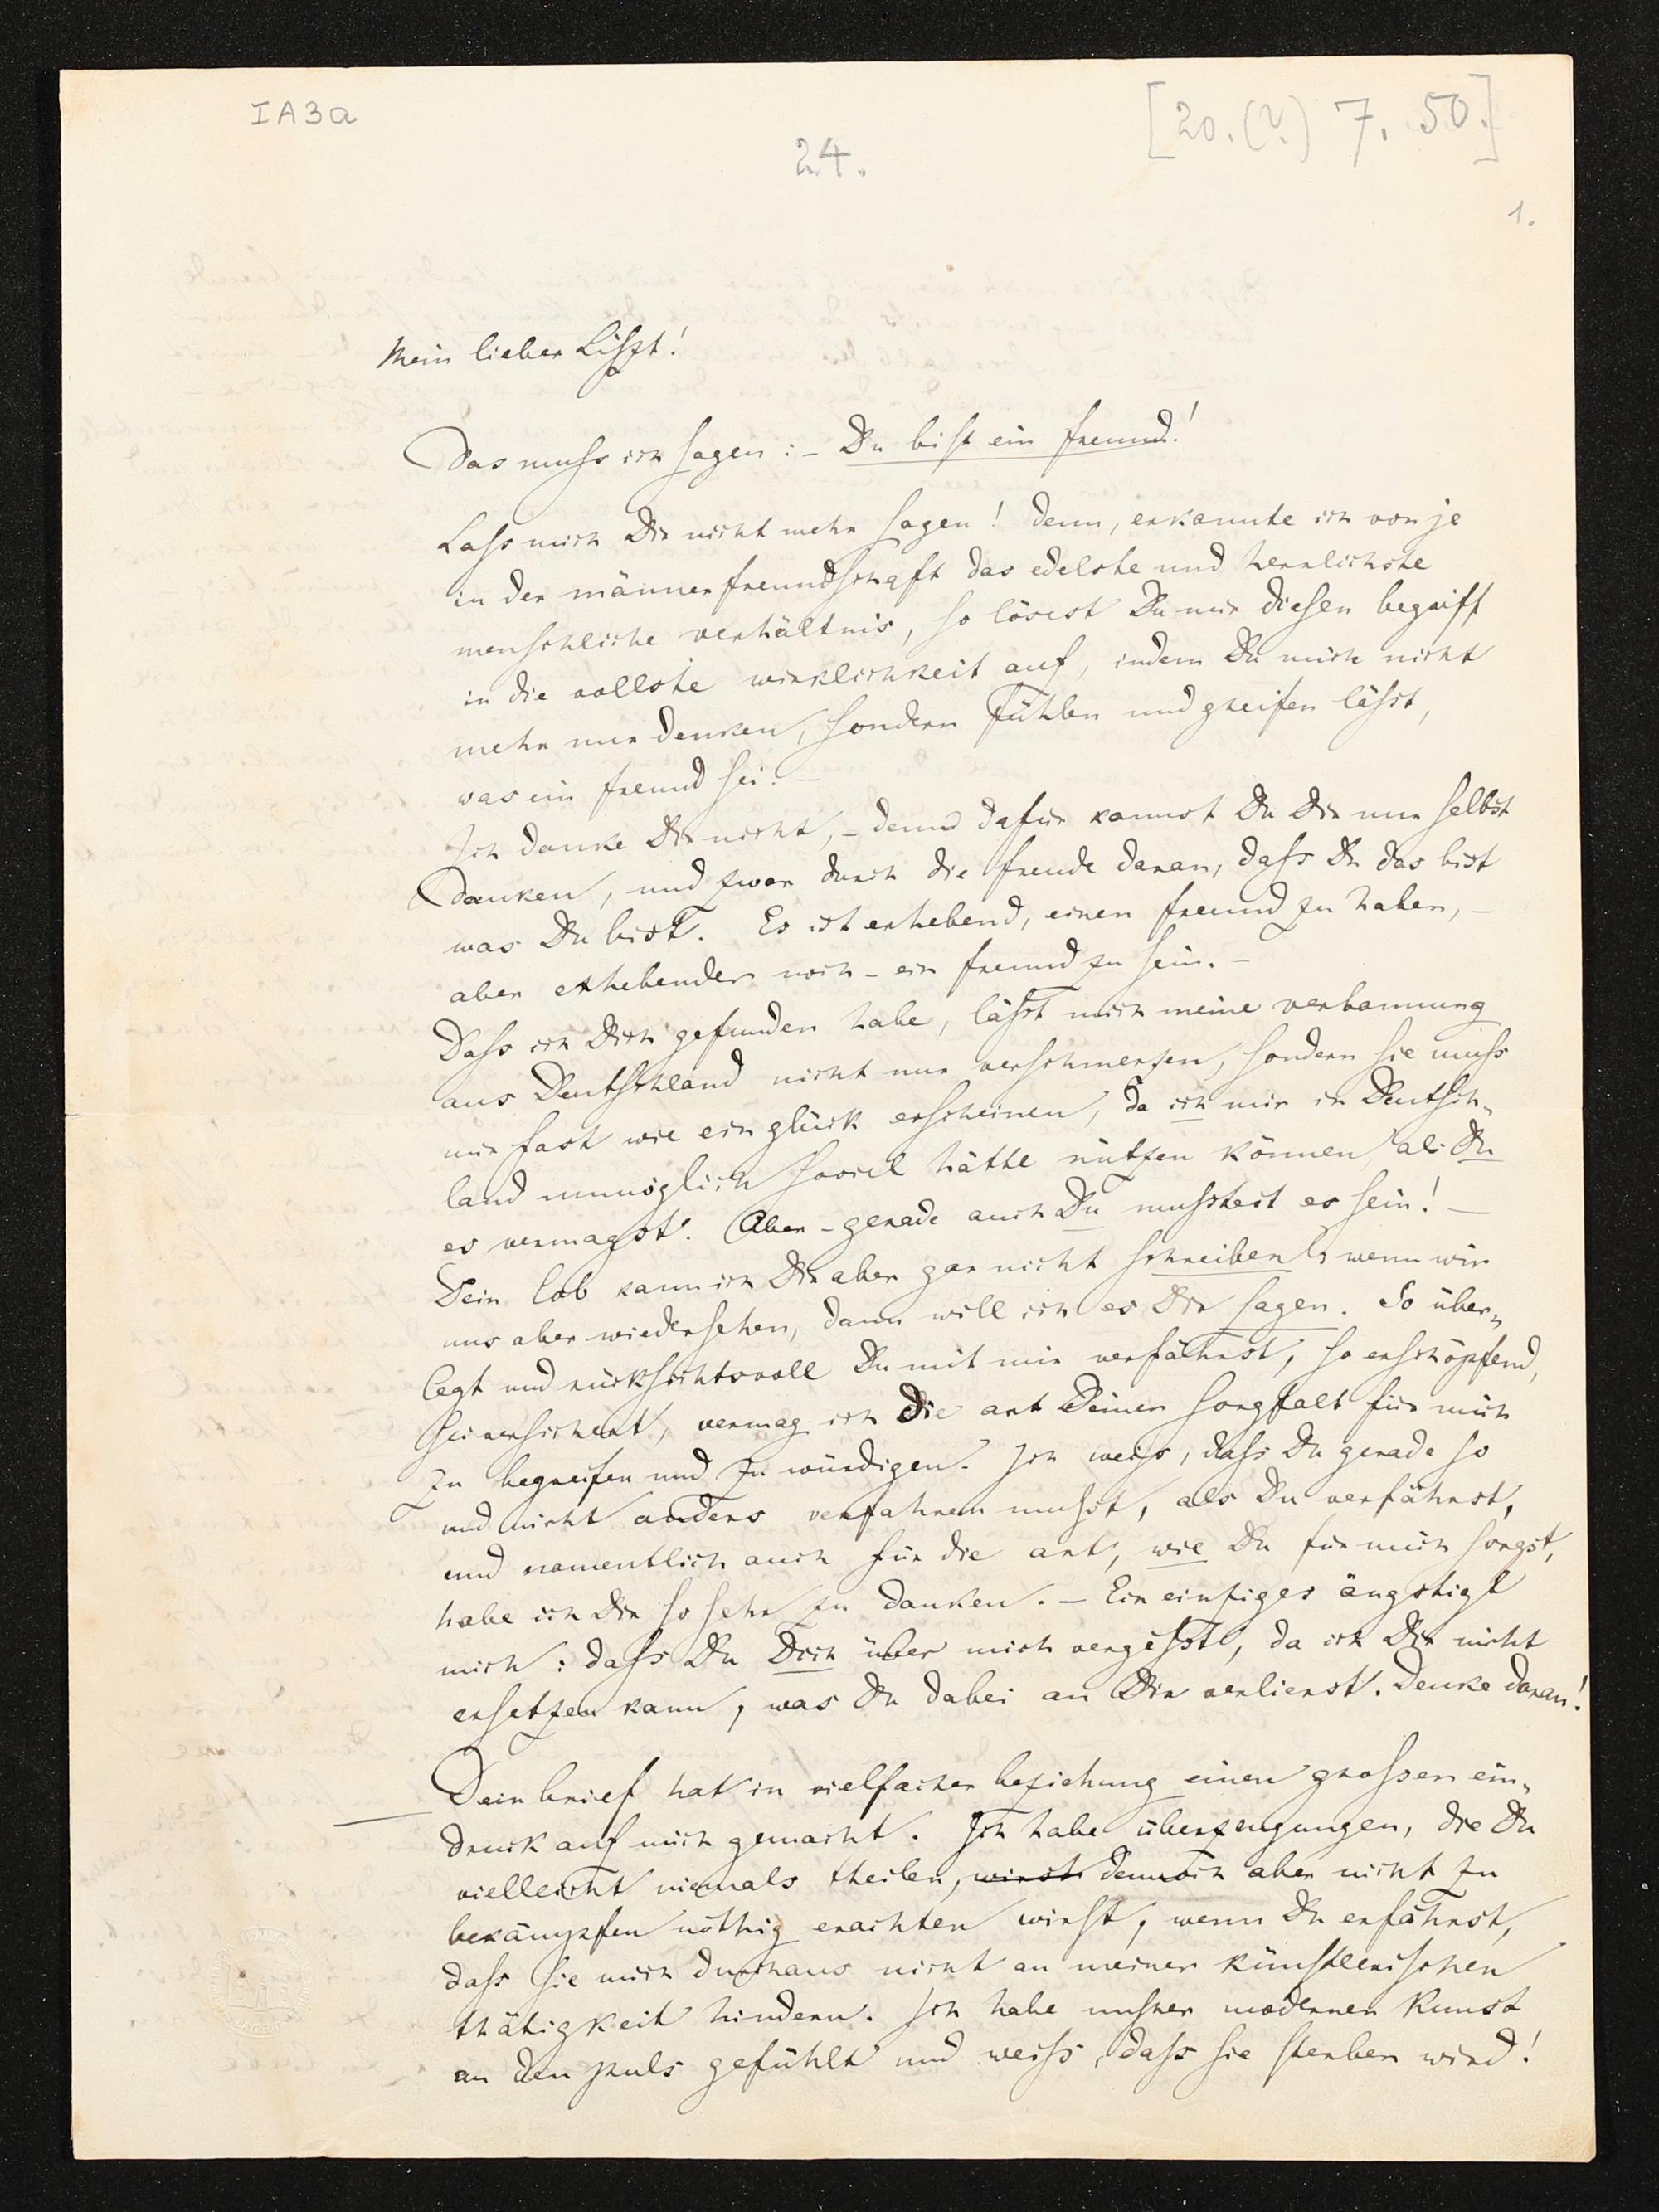 IA3a
24.
[20.(?) 7. 50.]
1.
Mein lieber Liszt!
Das muß ich sagen: – Du bist ein freund!
Laß mich Dir nicht mehr sagen! denn, erkannte ich von je
in der männerfreundschaft das edelste und herrlichste
menschliche verhältnis, so lösest Du mir diesen begriff
in die vollste wirklichkeit auf, indem Du mich nicht
mehr nur denken, sondern fühlen und greifen läßt,
was ein freund sei. –
Ich danke Dir nicht, – denn dafür kannst Du Dir nur selbst
danken, und zwar durch die freude daran, daß Du das bist
was Du bist. Es ist erhebend, einen freund zu haben, –
aber erhebender noch – ein freund zu sein. –
Daß ich Dich gefunden habe, läßt mich meine verbannung
aus Deutschland nicht nur verschmerzen, sondern sie muß
mir fast wie ein glück erscheinen, da ich mir in Deutsch„
land unmöglich soviel hätte nützen können, als Du
es vermagst. Aber – gerade auch Du mußtest es sein! –
Dein lob kann ich Dir aber gar nicht schreiben; wenn wir
uns aber wiedersehen, dann will ich es Dir sagen. So über„
legt und rücksichtsvoll Du mit mir verfährst, so erschöpfend,
sei versichert, vermag ich die art Deiner sorgfalt für mich
zu begreifen und zu würdigen. Ich weiß, daß Du gerade so
und nicht anders verfahren mußt, als Du verfährst,
und namentlich auch für die art, wie Du für mich sorgst,
habe ich Dir so sehr zu danken. – Ein einziges ängstigt
mich: daß Du Dich über mich vergißt, da ich Dir nicht
ersetzen kann, was Du dabei an Dir verlierst. Denke daran!
Dein brief hat in vielfacher beziehung einen großen ein„
druck auf mich gemacht. Ich habe überzeugungen, die Du
vielleicht niemals theilen, wirst dennoch aber nicht zu
bekämpfen nöthig erachten wirst, wenn Du erfährst,
daß sie mich durchaus nicht an meiner künstlerischen
thätigkeit hindern. Ich habe unsrer modernen kunst
an den puls gefühlt und weiß, daß sie sterben wird!